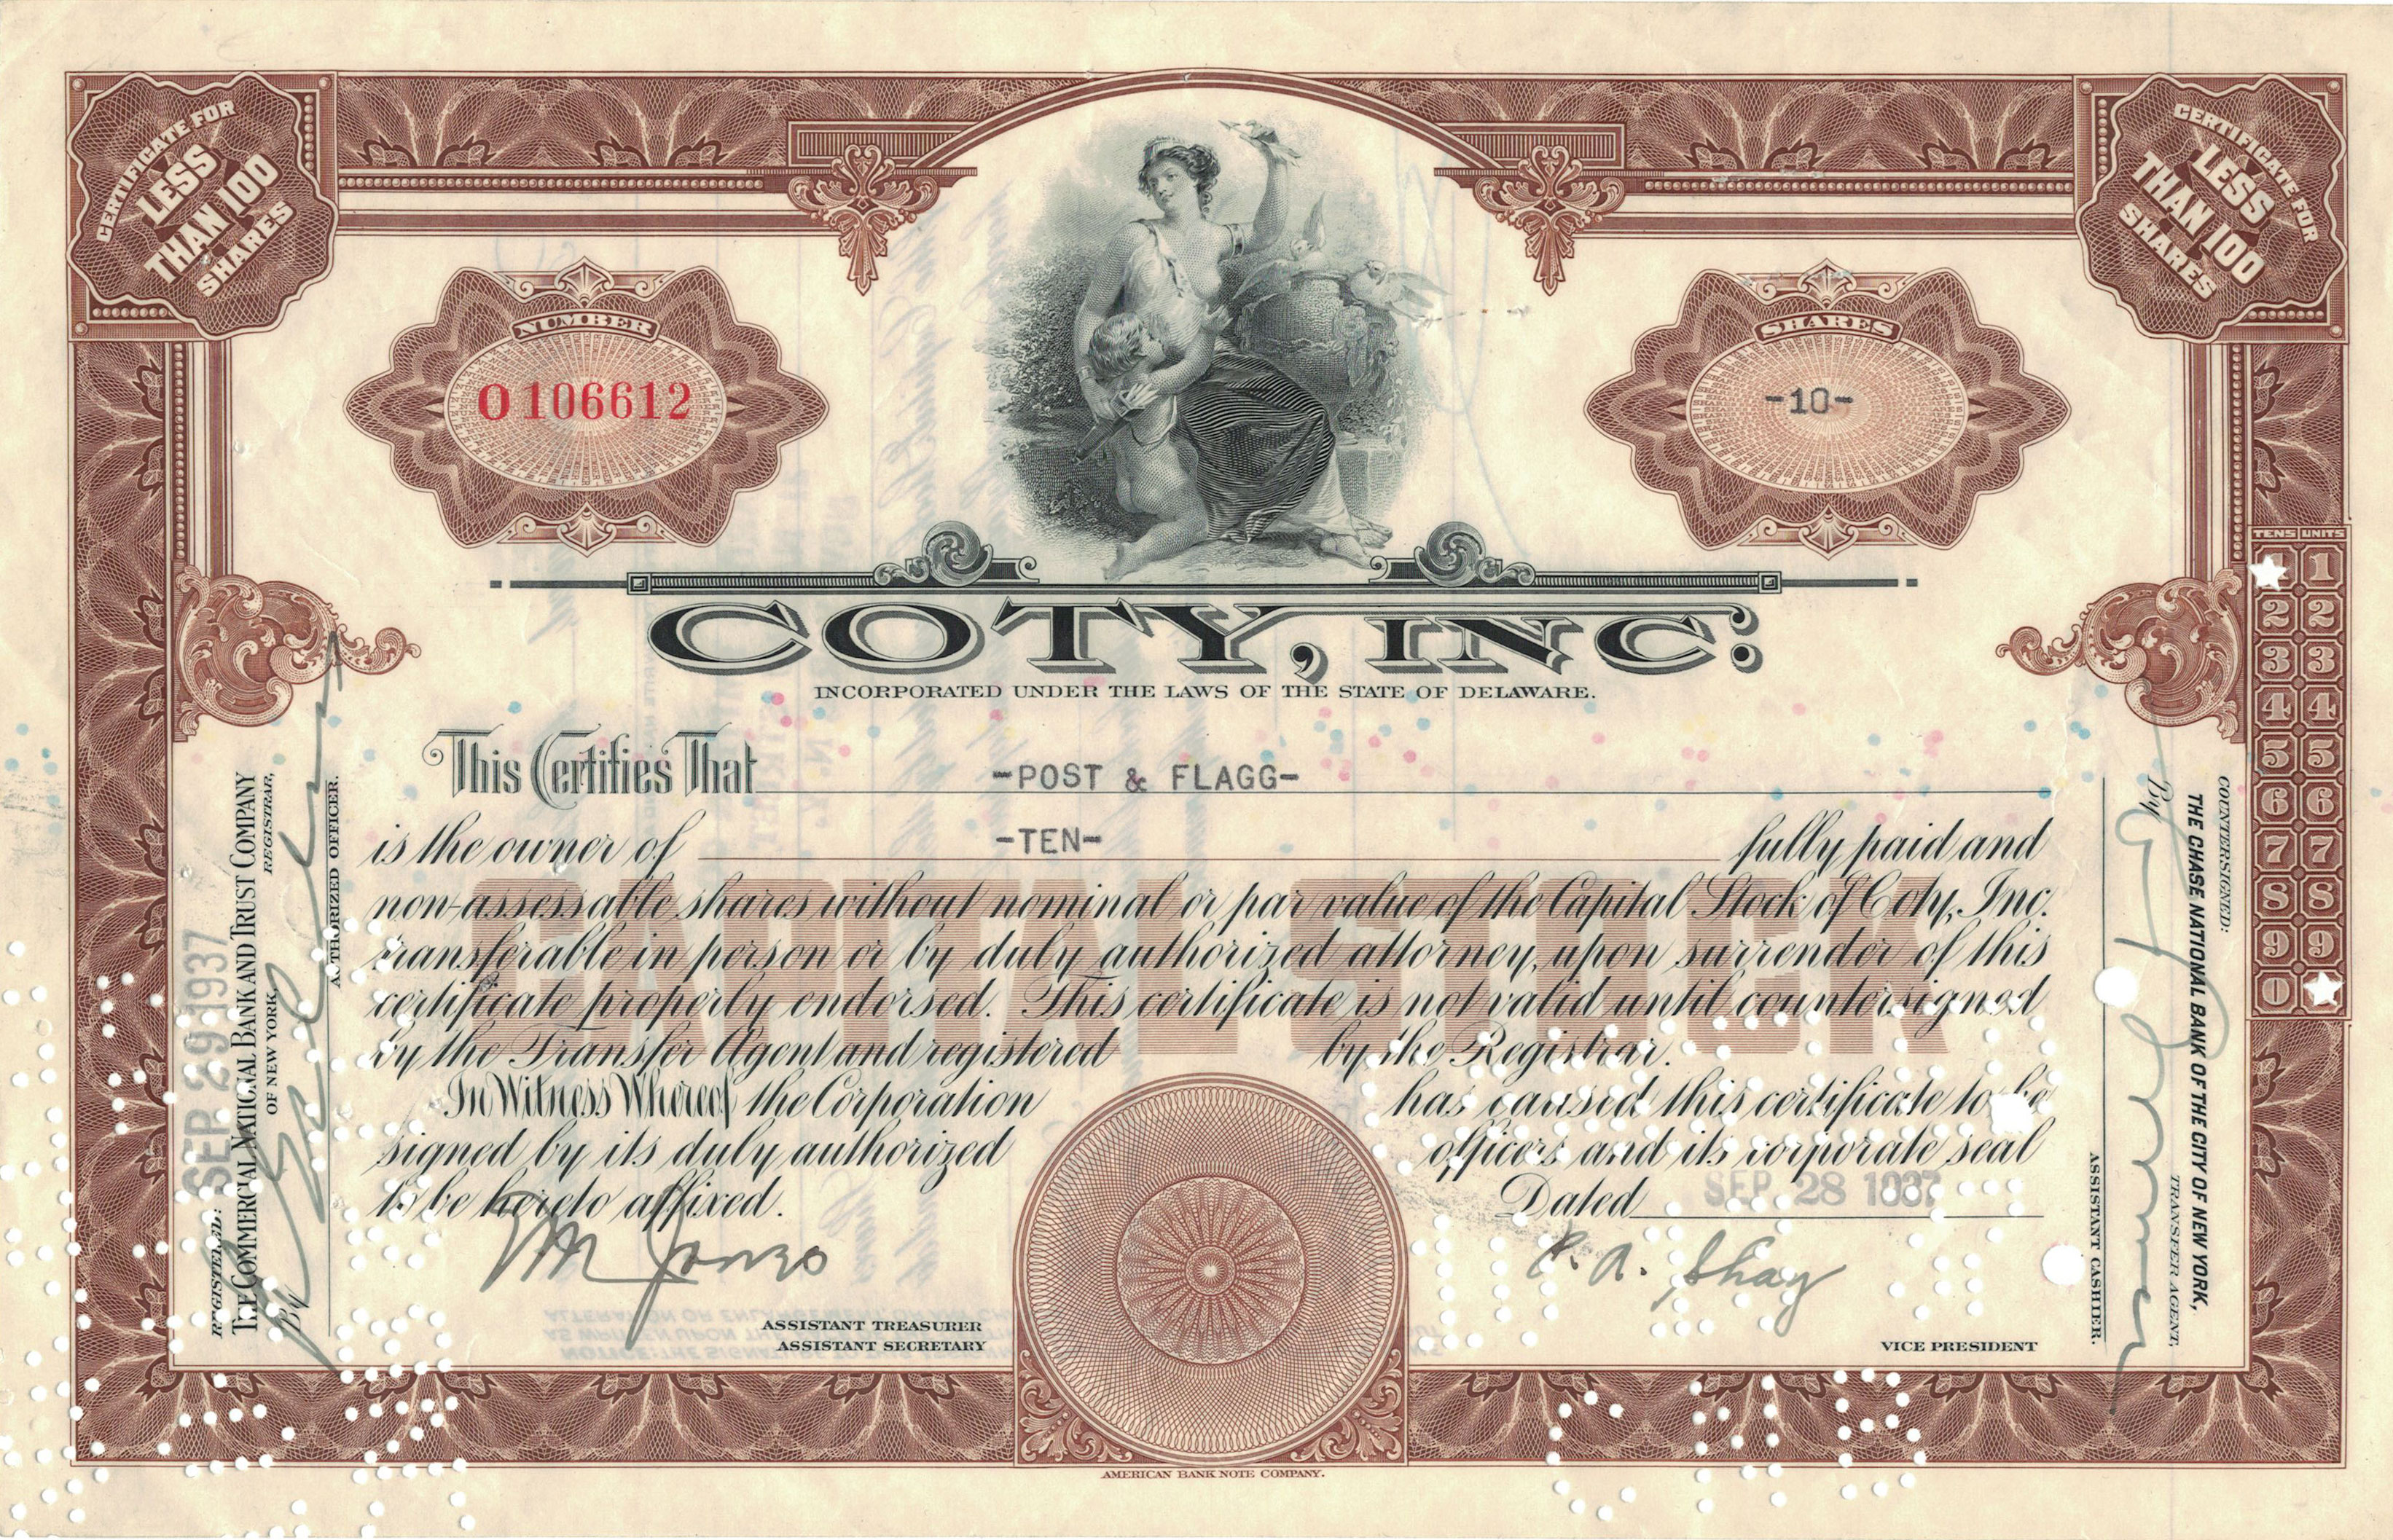 CERTIFICATE FOR
LESS
THAN 100
SHARES
CERTIFICATE FOR
LESS
THAN 100
SHARES
NUMBER
O106612
SHARES
-10-
COTY, INC.
INCORPORATED UNDER THE LAWS OF THE STATE OF DELAWARE.
This Certifies That -POST & FLAGG-
is the owner of -TEN- fully paid and
CAPITAL STOCK
non-assessable shares without nominal or par value of the Capital Stock of Coty, Inc.
transferable in person or by duly authorized attorney, upon surrender of this
certificate properly endorsed. This certificate is not valid until countersigned
by the Transfer Agent and registered by the Registrar.
In Witness Whereof the Corporation has caused this certificate to be
signed by its duly authorized officers and its corporate seal
to be hereto affixed. Dated SEP 28 1937
P. A. Shay
ASSISTANT TREASURER
ASSISTANT SECRETARY
VICE PRESIDENT
AMERICAN BANK NOTE COMPANY.
REGISTERED: SEP 29 1937
THE COMMERCIAL NATIONAL BANK AND TRUST COMPANY
OF NEW YORK, REGISTRAR,
By
AUTHORIZED OFFICER.
COUNTERSIGNED:
THE CHASE NATIONAL BANK OF THE CITY OF NEW YORK,
TRANSFER AGENT,
By
ASSISTANT CASHIER.
TENS UNITS
1
2 2
3 3
4 4
5 5
6 6
7 7
8 8
9 9
0